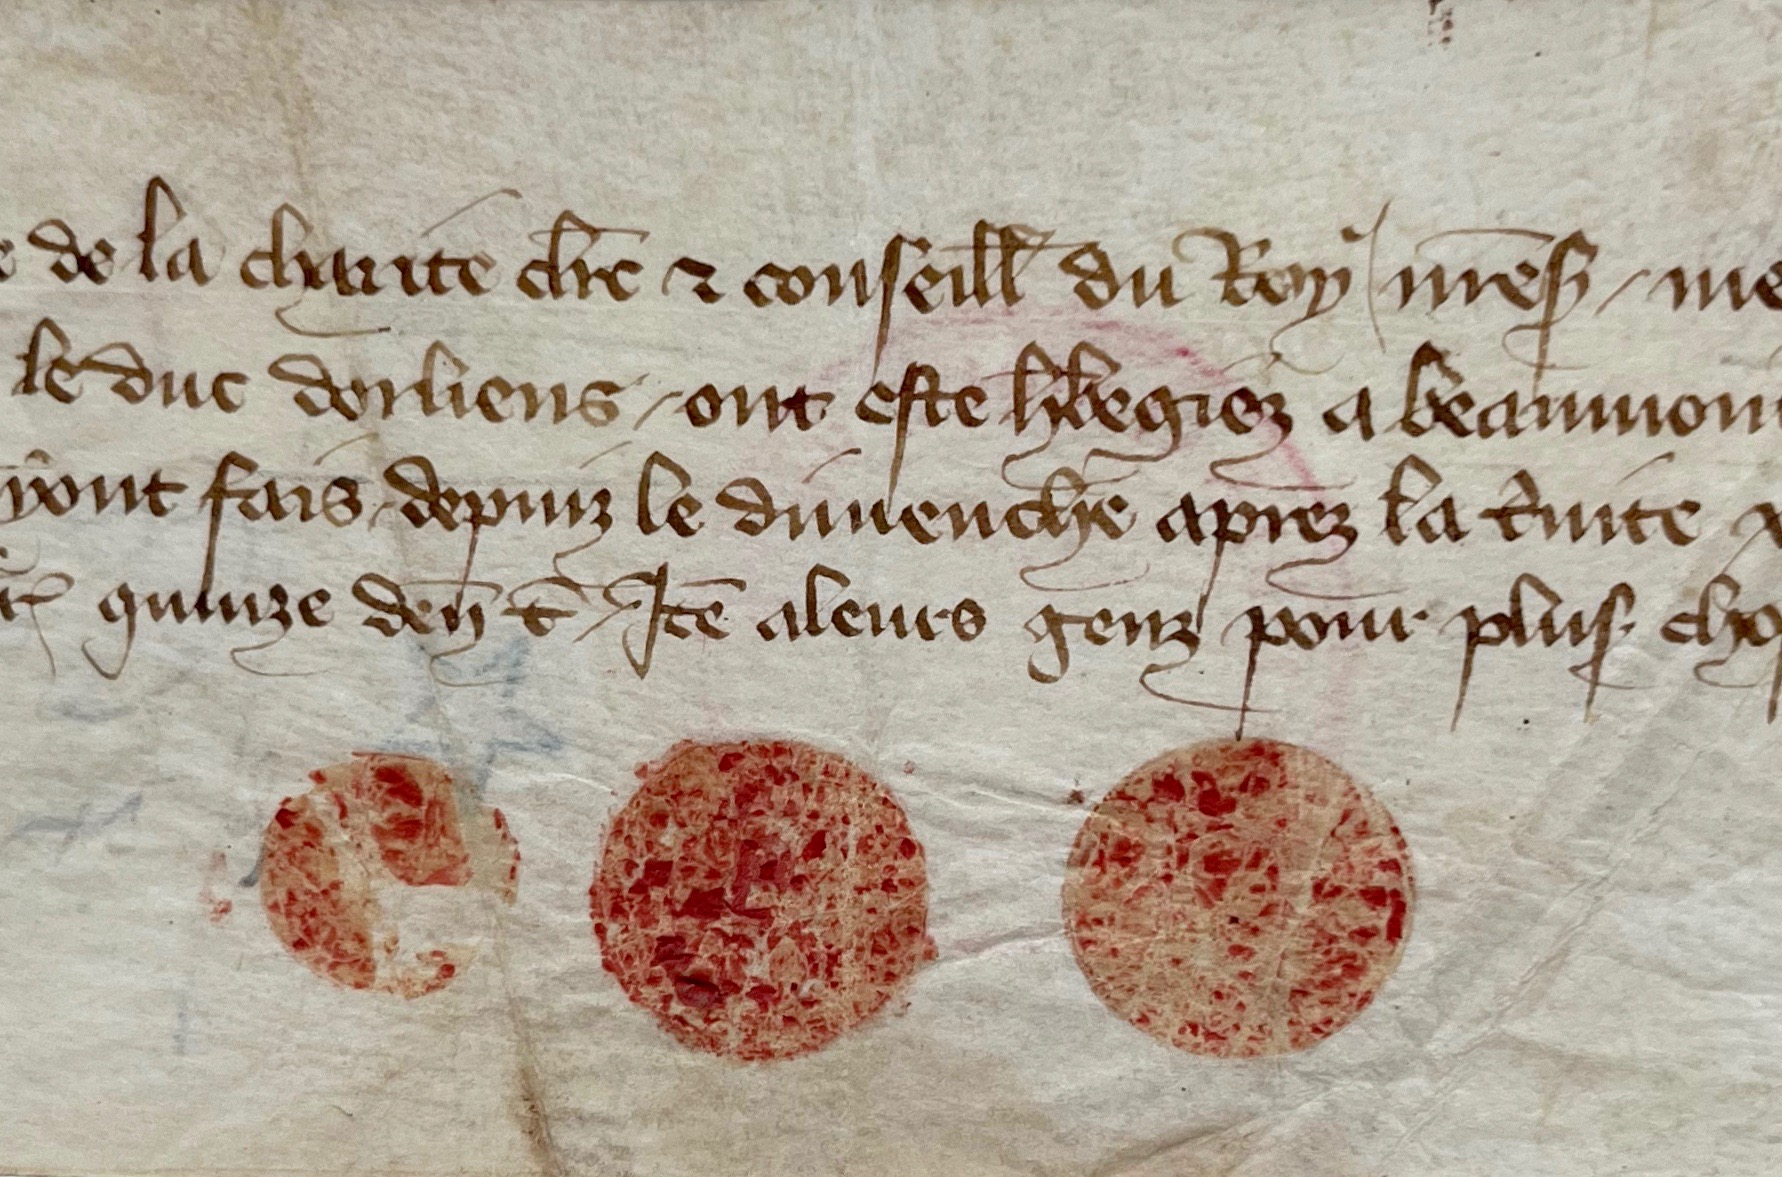 de la charite clrc ⁊ conseill du Roy mess me
le duc dorliens / ont este hbegiez a beaumont
yont fais depuiz le dimenche aprez la tnite
quinze den t / Ite aleurs genz pour plus cho